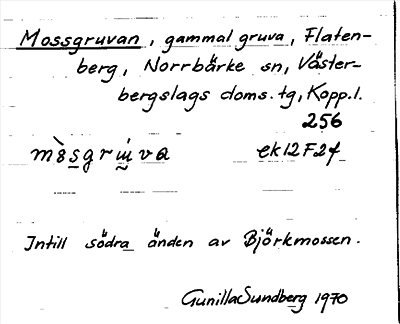 Mossgruvan, gammal gruva, Flaten-
berg, Norrbärke sn, Väster-
bergslags doms. tg, Kopp. l.
256
ek12F2f
Intill södra änden av Björkmossen.
Gunilla Sundberg 1970